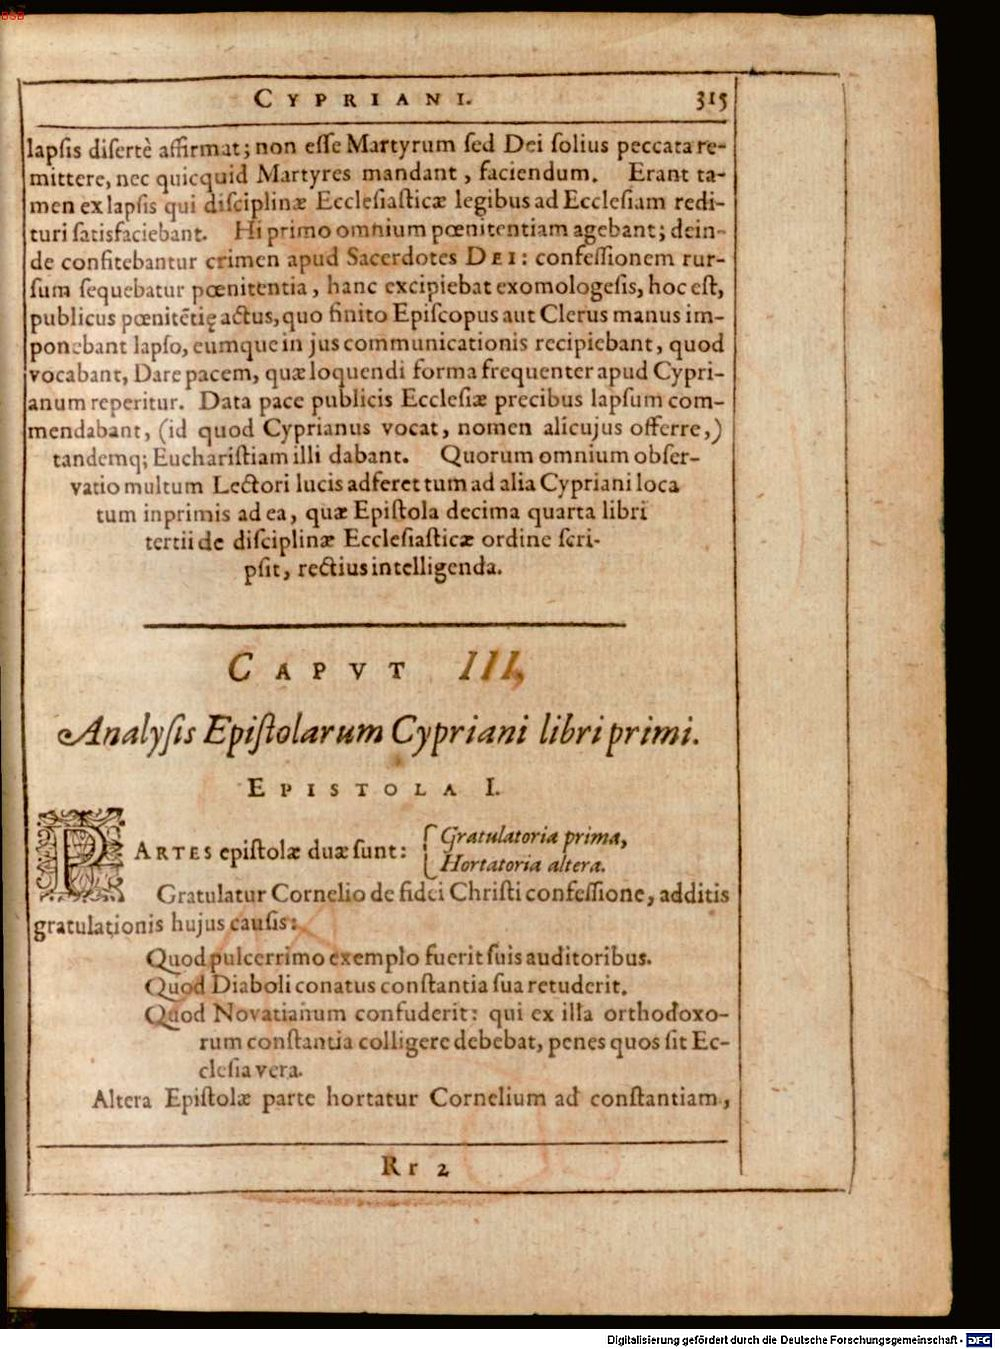 BSB
CYPRIANI. 315
lapſis diſertè affirmat; non eſſe Martyrum ſed Dei ſolius peccata re-
mittere, nec quicquid Martyres mandant, faciendum. Erant ta-
men ex lapſis qui diſciplinæ Eccleſiaſticæ legibus ad Eccleſiam redi-
turi ſatisfaciebant. Hi primo omnium pœnitentiam agebant; dein-
de confitebantur crimen apud Sacerdotes DEI: confeſſionem rur-
ſum ſequebatur pœnitentia, hanc excipiebat exomologeſis, hoc eſt,
publicus pœnitẽtię actus, quo finito Epiſcopus aut Clerus manus im-
ponebant lapſo, eumque in jus communicationis recipiebant, quod
vocabant, Dare pacem, quæ loquendi forma frequenter apud Cypri-
anum reperitur. Data pace publicis Eccleſiæ precibus lapſum com-
mendabant, (id quod Cyprianus vocat, nomen alicujus offerre,)
tandemq; Euchariſtiam illi dabant. Quorum omnium obſer-
vatio multum Lectori lucis adferet tum ad alia Cypriani loca
tum inprimis ad ea, quæ Epiſtola decima quarta libri
tertii de diſciplinæ Eccleſiaſticæ ordine ſcri-
pſit, rectius intelligenda.
CAPVT III,
Analyſis Epiſtolarum Cypriani libri primi.
EPISTOLA I.
PARTES epiſtolæ duæ ſunt: { Gratulatoria prima,
Hortatoria altera.
Gratulatur Cornelio de fidei Chriſti confeſſione, additis
gratulationis hujus cauſis:
Quod pulcerrimo exemplo fuerit ſuis auditoribus.
Quod Diaboli conatus conſtantia ſua retuderit.
Quod Novatianum confuderit: qui ex illa orthodoxo-
rum conſtantia colligere debebat, penes quos ſit Ec-
cleſia vera.
Altera Epiſtolæ parte hortatur Cornelium ad conſtantiam,
Rr 2
Digitalisierung gefördert durch die Deutsche Forschungsgemeinschaft - DFG